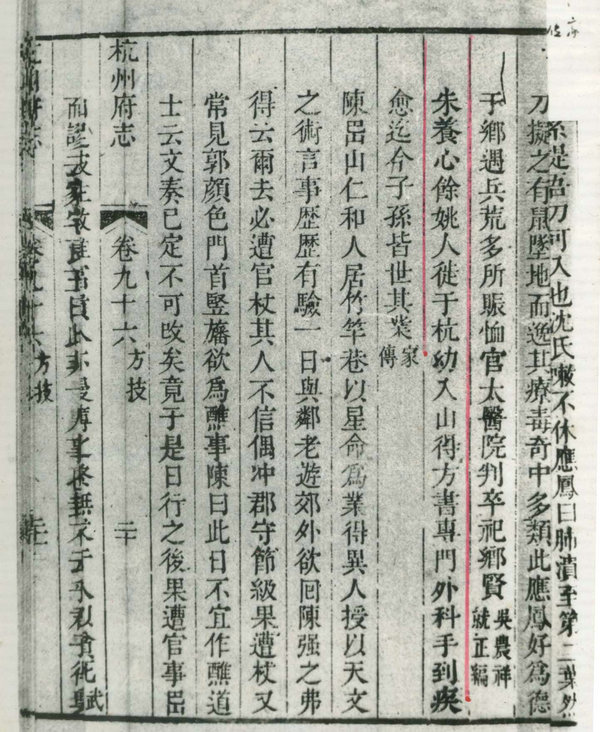 糸是啓刀可入也沈氏嗽不休應鳳曰肺潰至第二葉然
刀擬之有鼠墜地而逸其療毒奇中多類此應鳳好為德
于鄉遇兵荒多所賑恤官太醫院判卒祀鄉賢吳農祥
就正編
朱養心餘姚人徙于杭幼入山得方書專門外科手到疾
愈迄今子孫皆世其業家
傳
陳岊山仁和人居竹竿巷以星命爲業得異人授以天文
之術言事歷歷有驗一日與鄰老遊郊外欲回陳强之弗
得云爾去必遭官杖其人不信偶冲郡守節級果遭杖又
常見郭顏色門首竪旛欲爲醮事陳曰此日不宜作醮道
士云文奏已定不可改矣竟于是日行之後果遭官事岊
杭州府志
卷九十六 方技
二十
方技